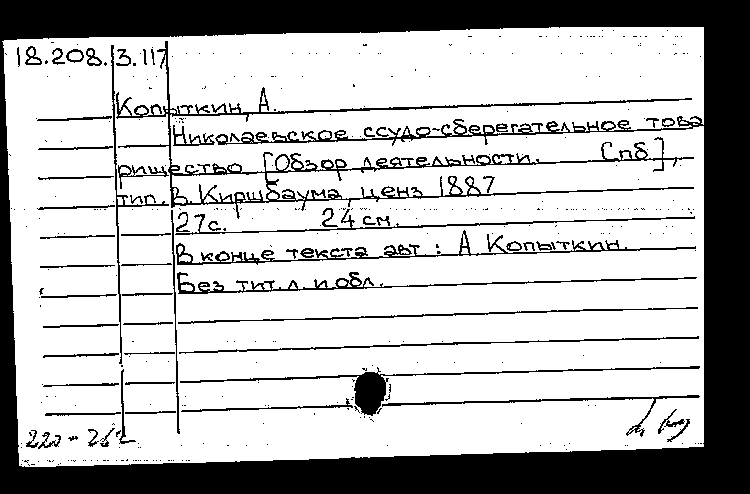 18.208.3.117
Копыткин, А.
Николаевское ссудо-сберегательное това
рищество [Обзор деятельности. Спб],
тип. В. Киршбаума, ценз 1887
27с. 24 см.
В конце текста авт : А. Копыткин.
Без тит. л. и обл.